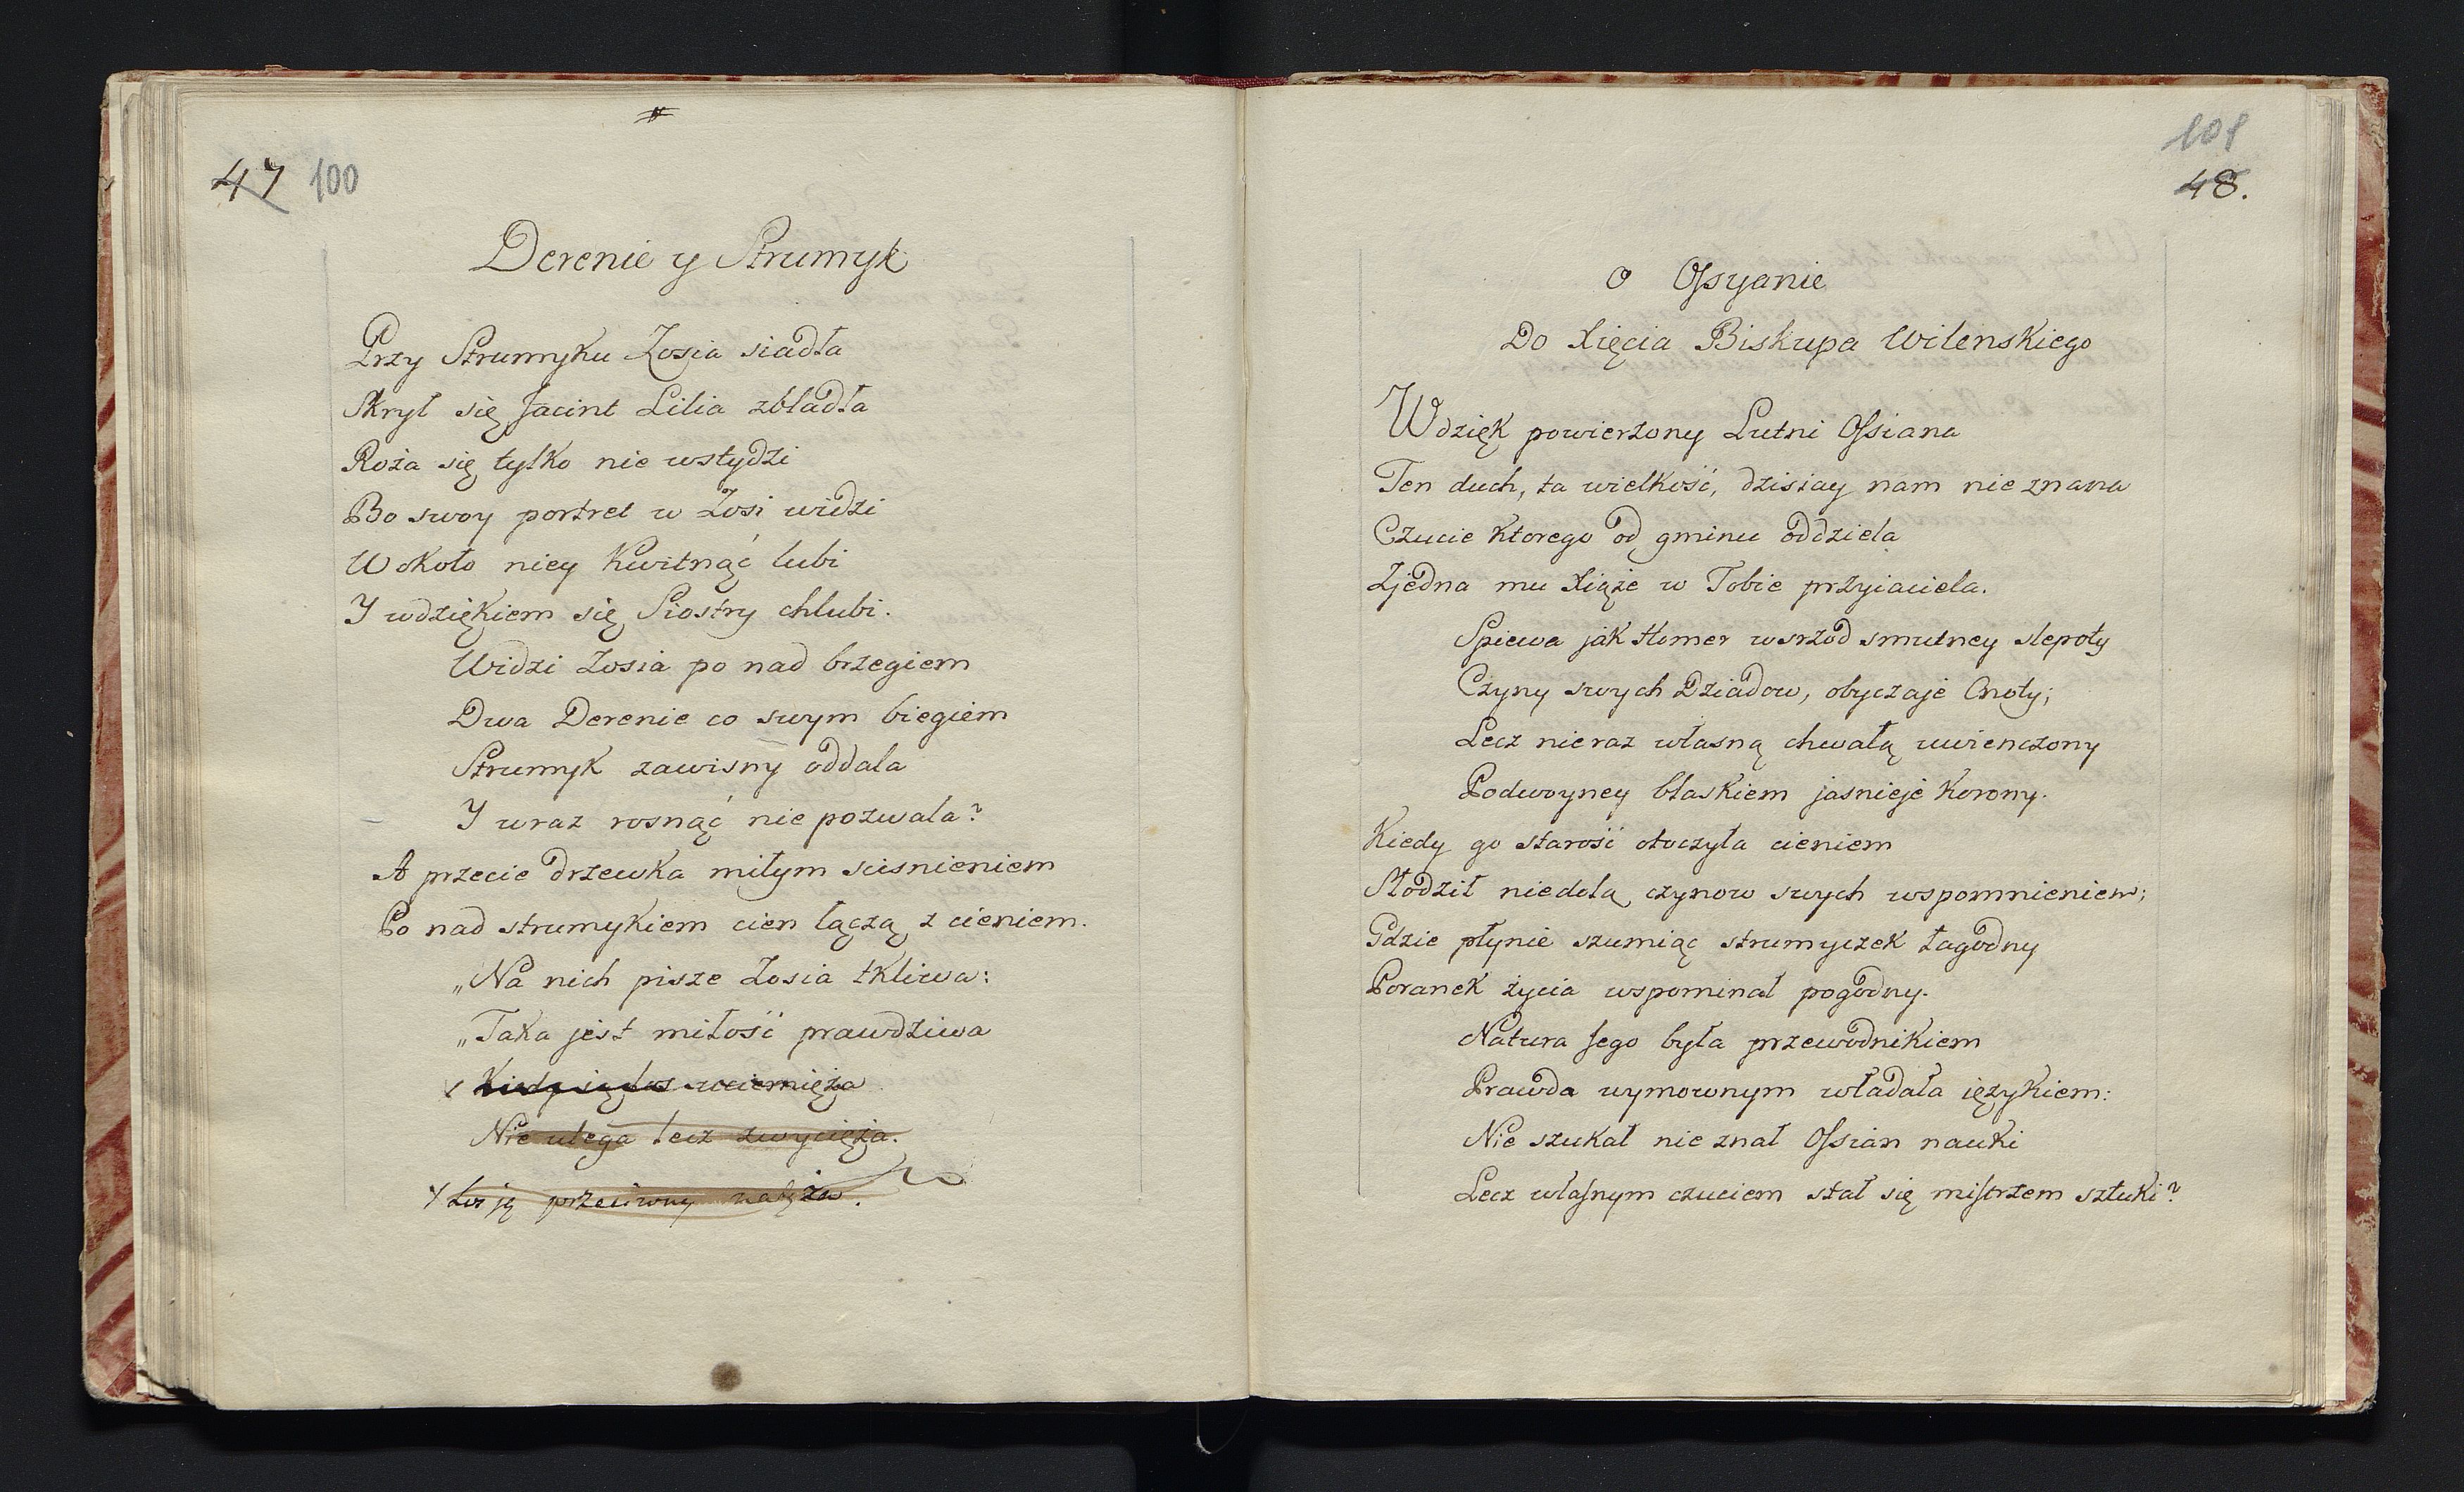 47 100
Derenie y Strumyk
Przy Strumyku Zosia siadła
Skrył się Jacint Lilia zbladła
Roża się tylko nie wstydzi
Bo swoy portret w Zosi widzi
W około niey Kwitnąć lubi
Y wdziękiem się Siostry chlubi.
Widzi Zosia po nad brzegiem
Dwa Derenie co swym biegiem
Strumyk zawisny oddala
Y wraz rosnąć nie pozwala?
A przecie drzewka miłym scisnieniem
Po nad strumykiem cien łączą z cieniem.
„Na nich pisze Zosia tkliwa:
„Taka jest miłość prawdziwa
Kiedy się los uciemięża
Nie ulega lecz zwycięża.
los ją przeciwny
101
48.
O Ossyanie
Do Xięcia Biskupa Wilenskiego
Wdzięk powierzony Lutni Ossiana
Ten duch, ta wielkość, dzisiay nam nie znana
Czucie ktorego od gminu oddziela
Zjedna mu Xiąże w Tobie przyiaciela.
Spiewa jak Homer wsrzod smutney slepoty
Czyny swych Dziadow, obyczaje Cnoty;
Lecz nieraz własną chwałą uwienczony
Podwoyney blaskiem jasnieje Korony.
Kiedy go starość otoczyła cieniem
Słodził niedolą czynow swych wspomnieniem;
Gdzie płynie szumiąc strumyczek łagodny
Poranek życia wspominał pogodny.
Natura Jego była przewodnikiem
Prawda wymownym władała ięzykiem:
Nie szukał nie znał Ossian nauki
Lecz własnym czuciem stał się mistrzem sztuki?